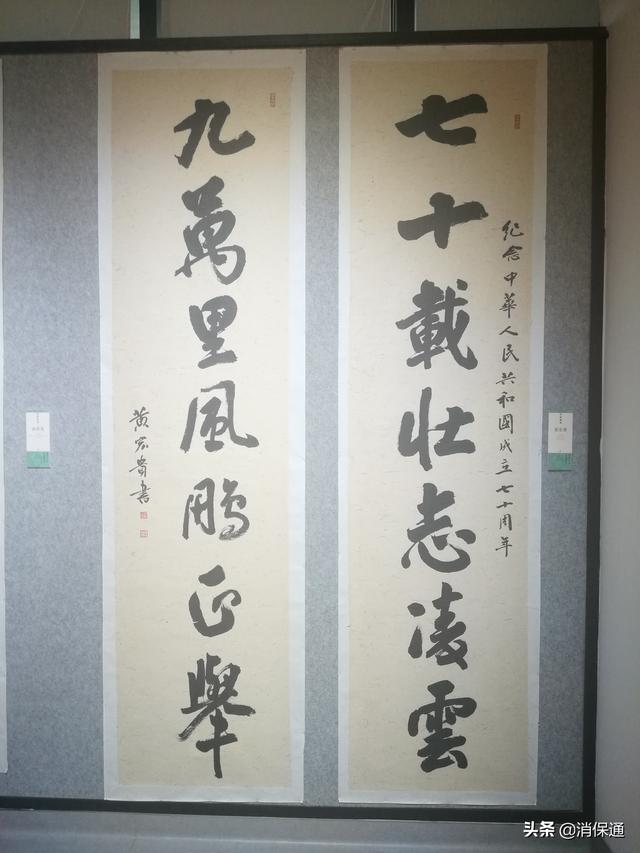 紀念中華人民共和國成立七十周年
七十載壯志凌雲
九萬里風鵬正舉
黄宏貴書
头条 @消保通